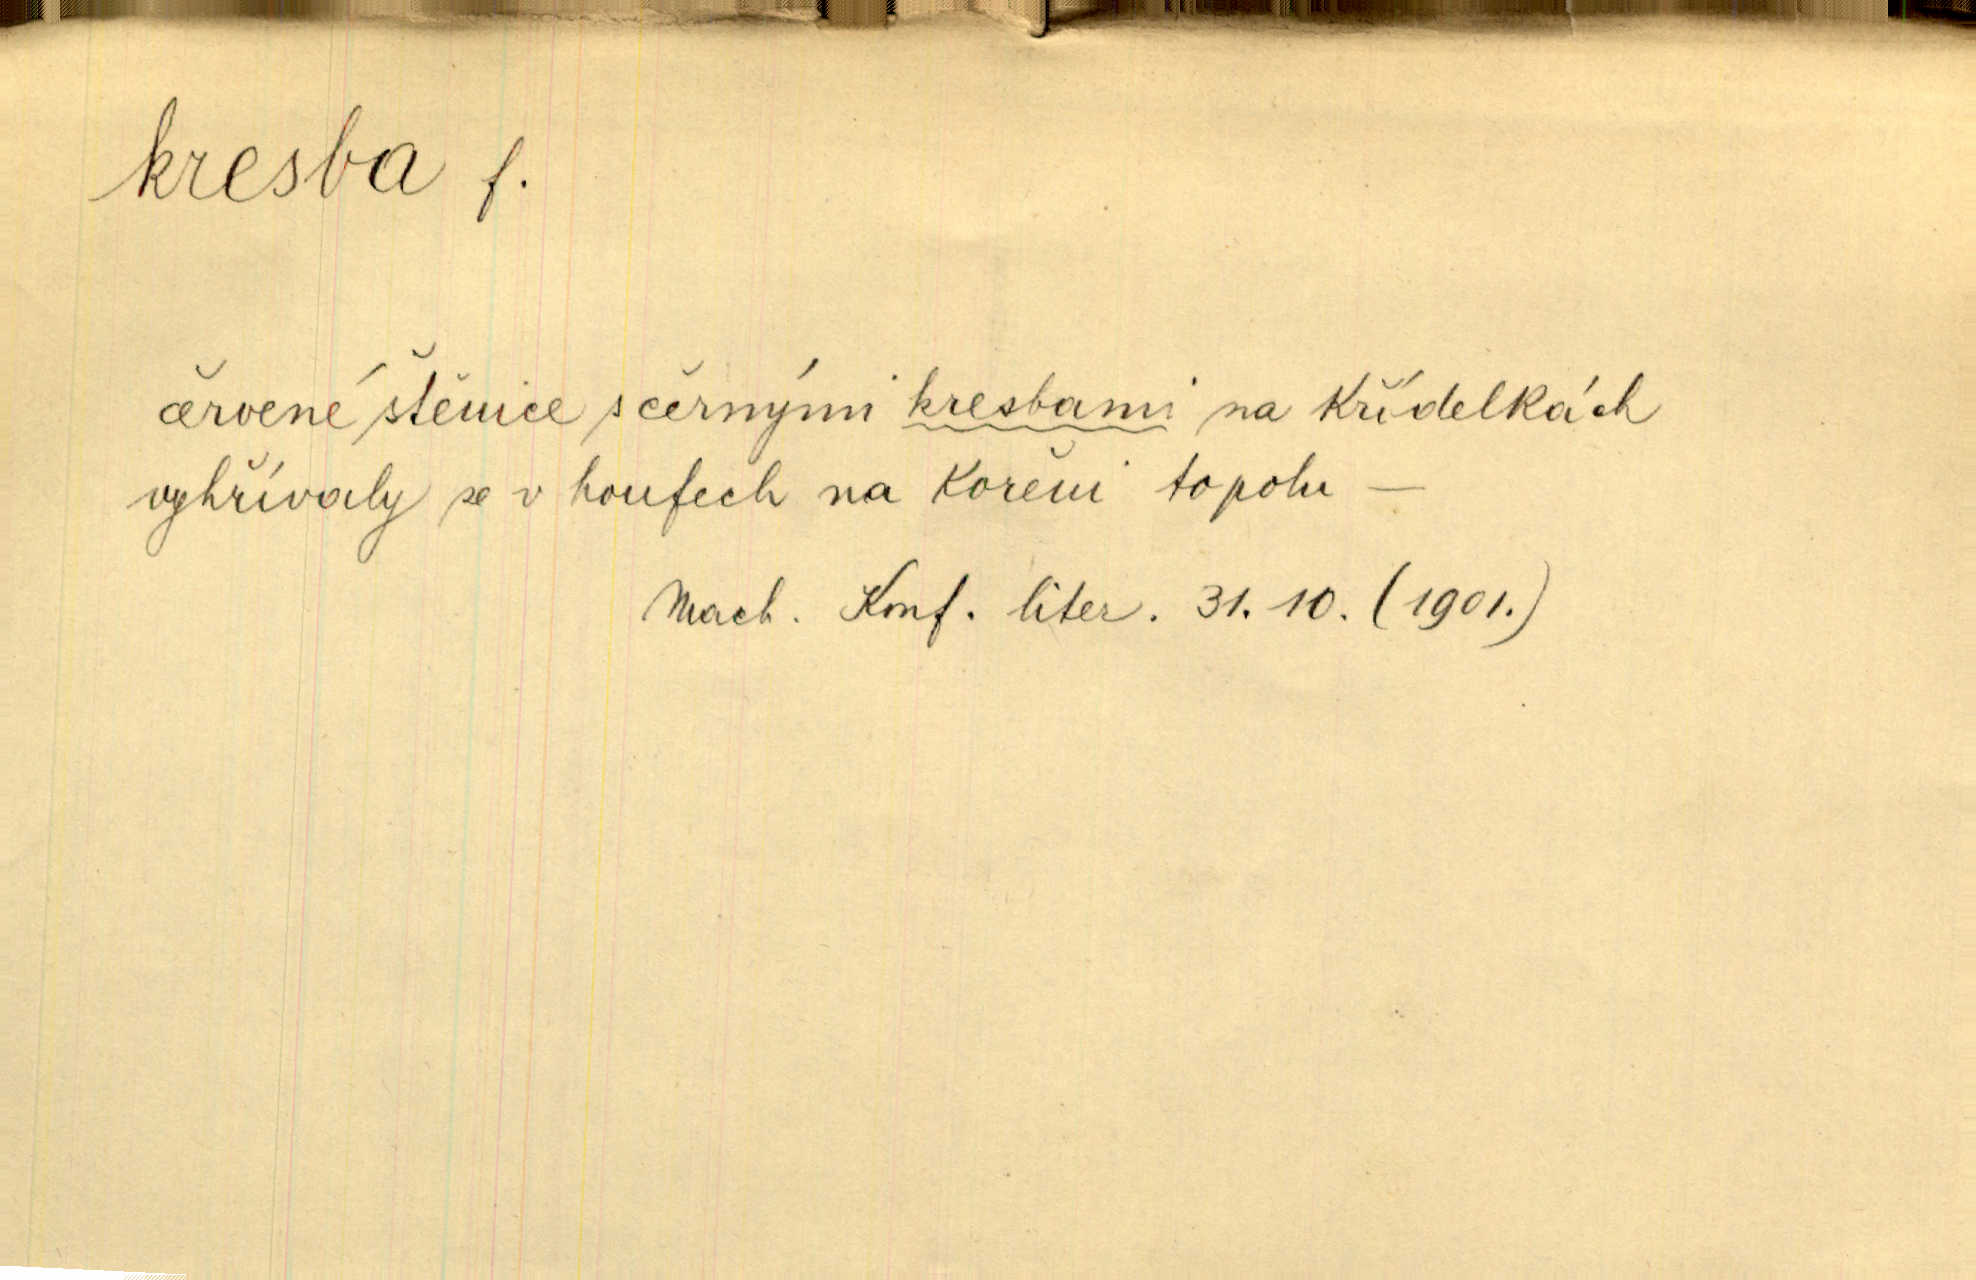 kresba f.
červené štěnice s černými kresbami na křídelkách
vyhřívaly se v houfech na kořeni topolu —
Mach. Konf. liter. 31. 10. (1901.)